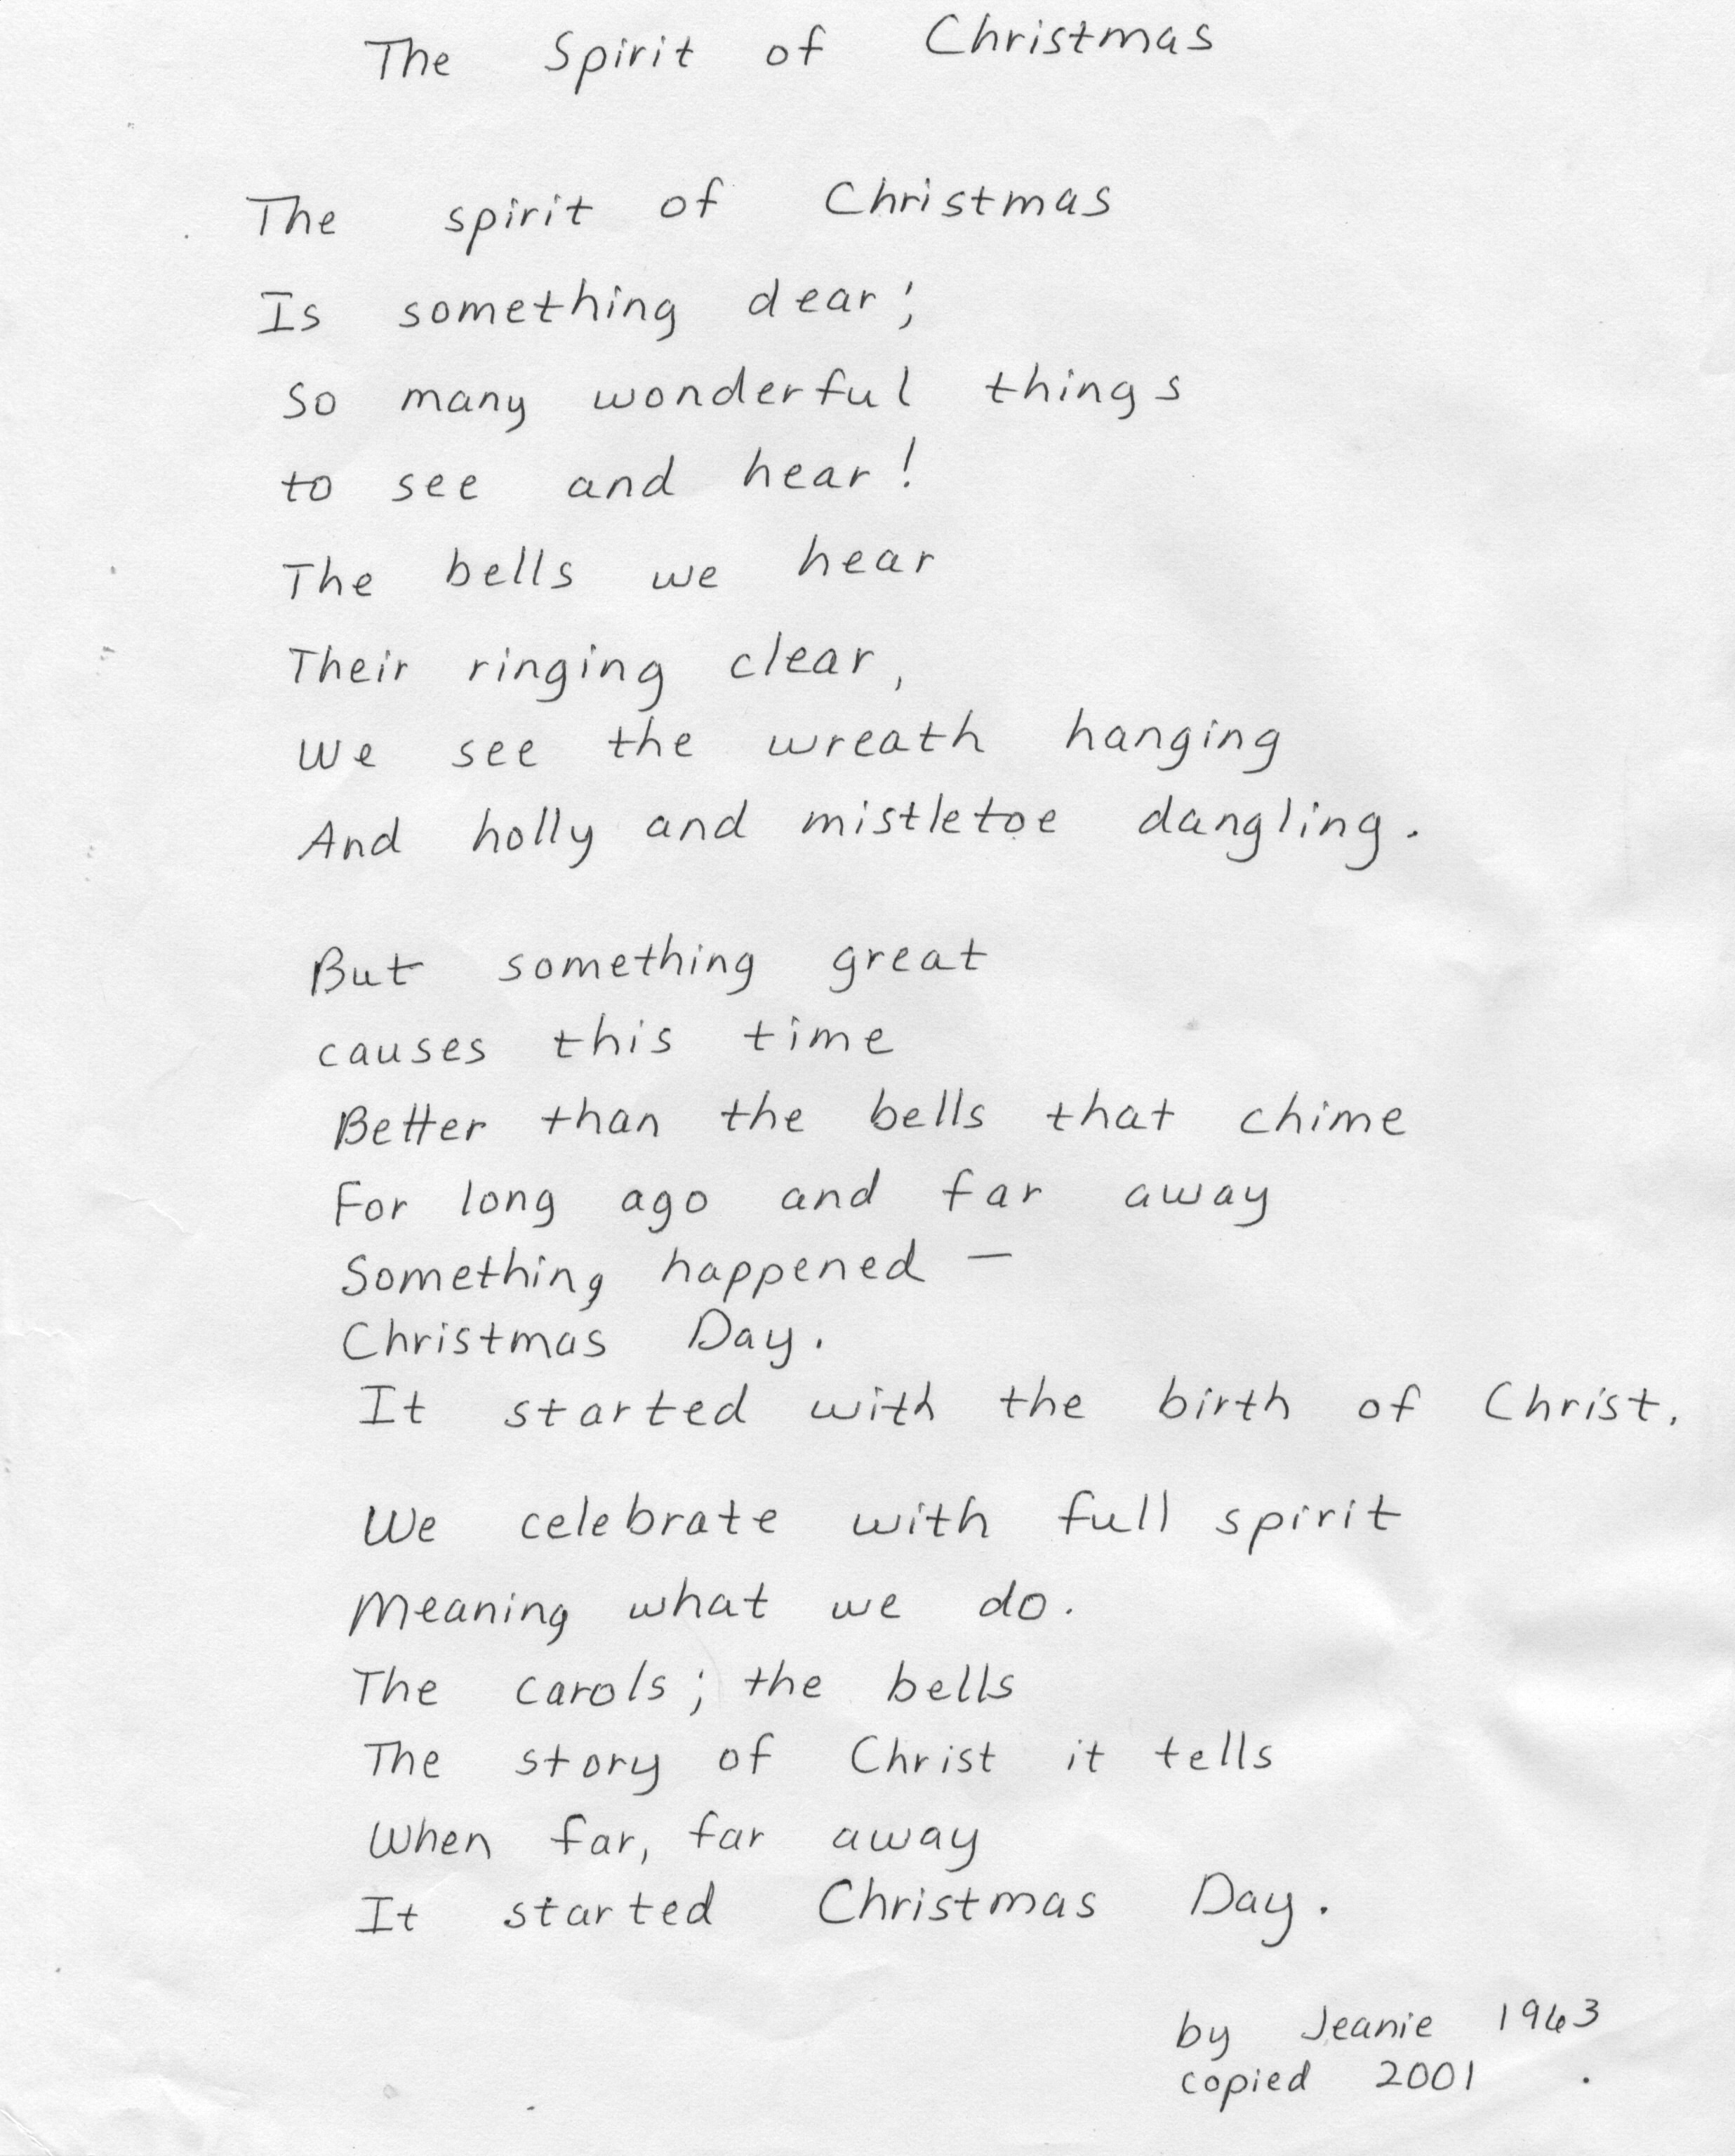 The Spirit of Christmas
The spirit of Christmas
Is something dear;
So many wonderful things
to see and hear!
The bells we hear
Their ringing clear,
We see the wreath hanging
And holly and mistletoe dangling.
But something great
causes this time
Better than the bells that chime
For long ago and far away
Something happened —
Christmas Day.
It started with the birth of Christ.
We celebrate with full spirit
Meaning what we do.
The carols; the bells
The story of Christ it tells
When far, far away
It started Christmas Day.
by Jeanie 1963
copied 2001